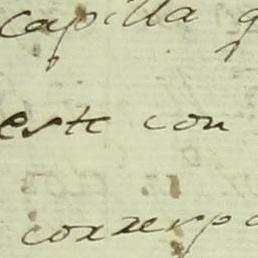 capilla q
este con
correrpo